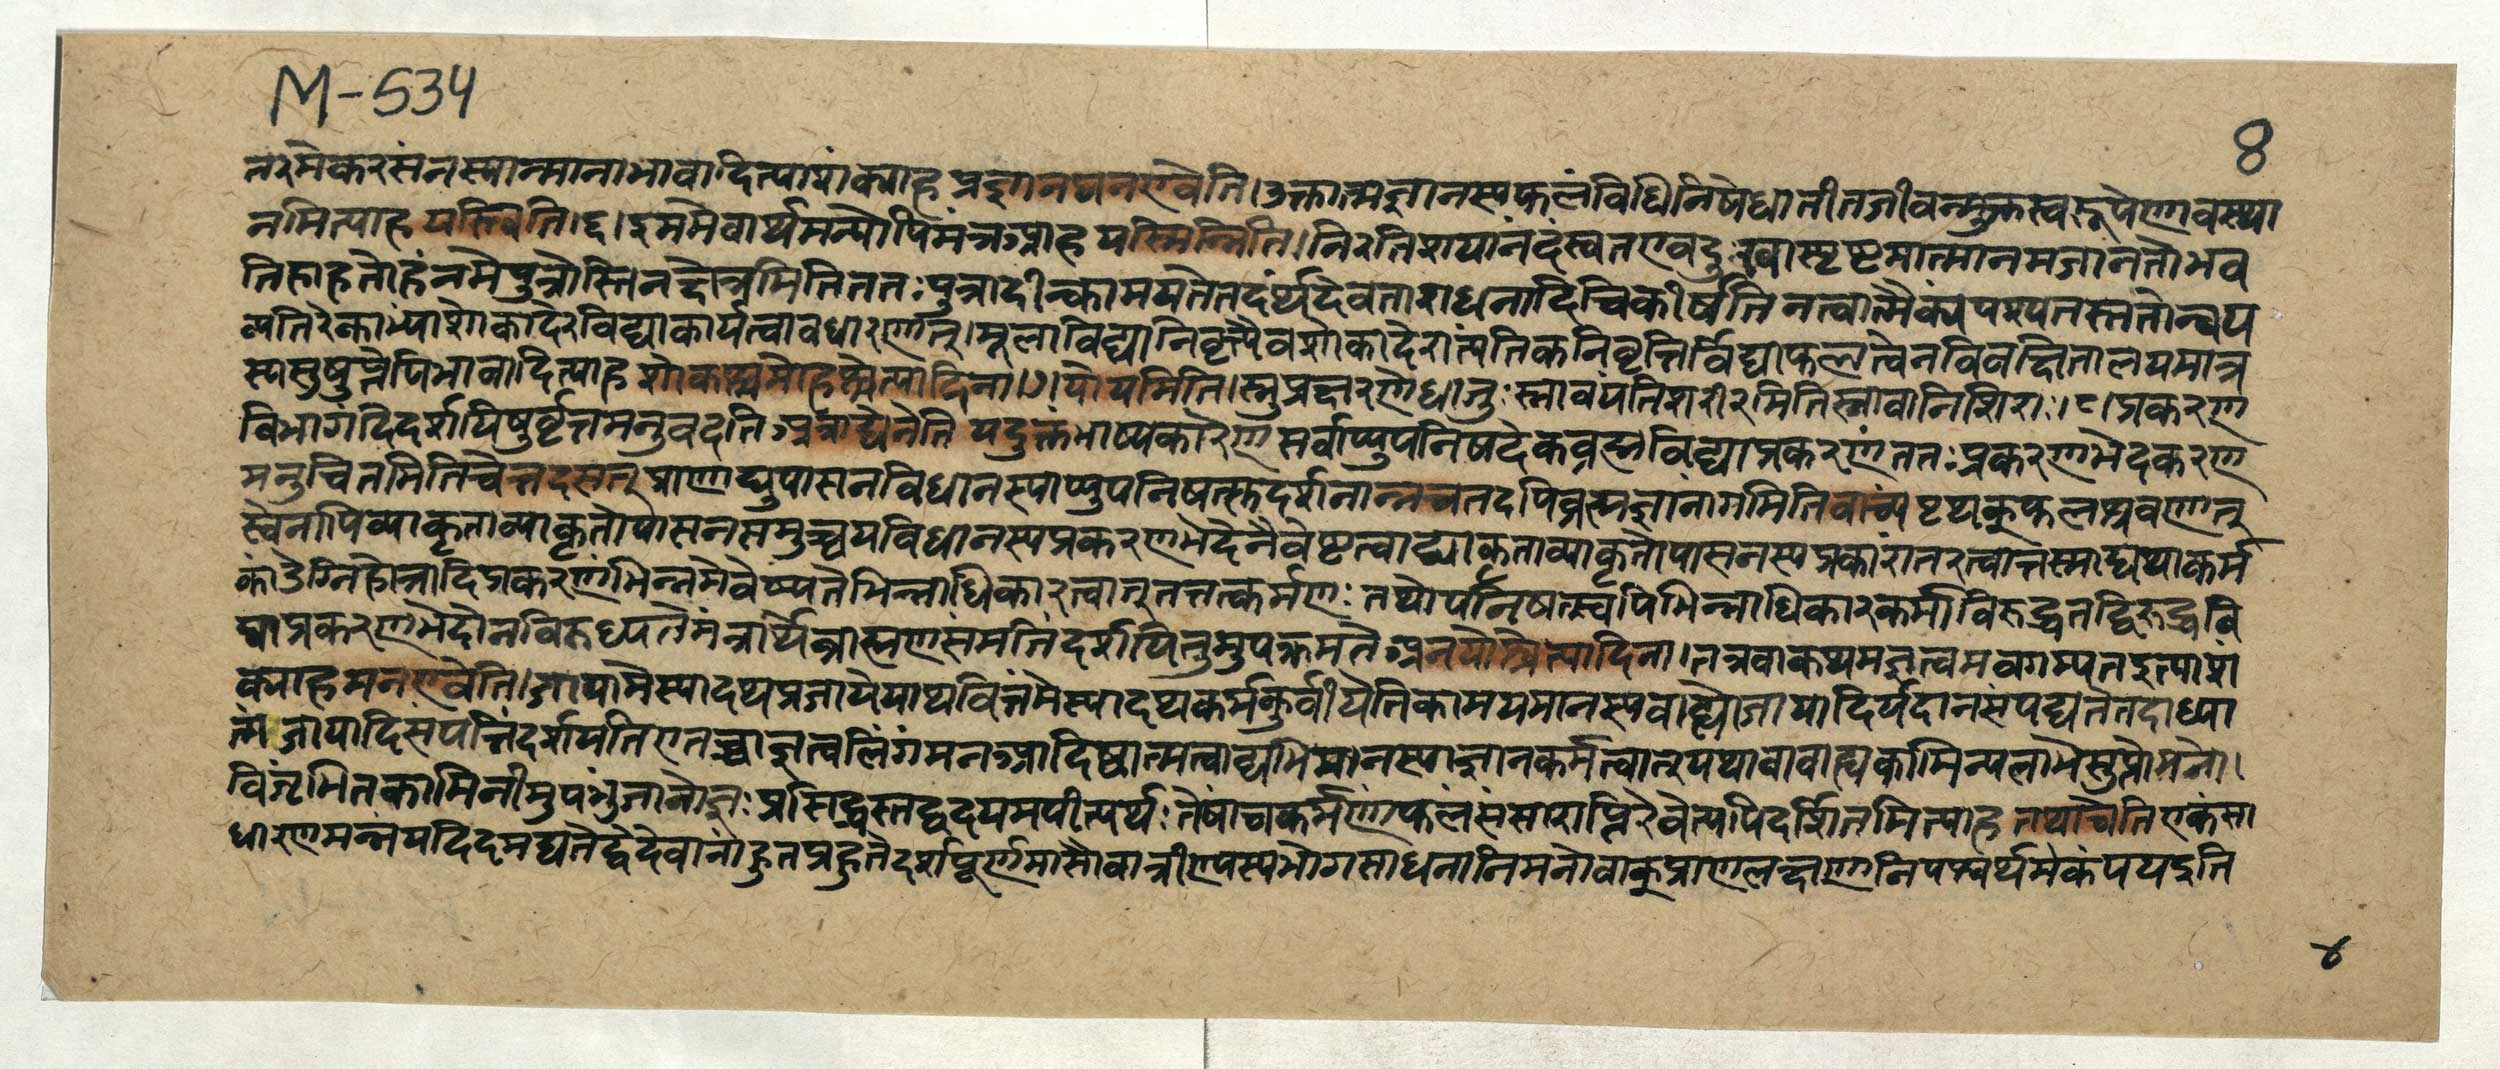 M-534
8
न्तरमेकरसं न स्यान्मानाभावादित्याशंक्याह प्रज्ञानघन एवेति । उक्तात्मज्ञानस्य फलं विधिनिषेधातीतजीवन्मुक्तस्वरूपेणावस्था
नमित्याह यस्त्विति । ६ । इममेवार्थमन्योपि मंत्र आह यस्मिन्निति । निरतिशयानंदं स्वत एव दुःखास्पृष्टमात्मानमजानतो भव
ति हाहतोहं न मे पुत्रोस्ति न क्षेत्रमिति ततः पुत्रादीन्कामयते तदर्थं देवताराधनादि चिकीर्षति नत्वात्मैक्यं पश्यतस्ततोन्वय
व्यतिरेकाभ्यां शोकादेरविद्याकार्यत्वावधारणात् । मूलाविद्यानिवृत्त्यैव शोकादेरात्यंतिकनिवृत्तिर्विद्याफलत्वेन विवक्षिता लयमात्र
स्य सुषुप्तेपि भावादित्याह शोकश्च मोहश्चेत्यादिना । ७ । योयमिति । स्नु प्रक्षरणे धातुः स्नावयंति शरीरमिति स्नावानि शिराः । ८ । प्रकरण
विभागं दिदर्शयिषुर्वृत्तमनुवदति अत्राद्येनेति यदुक्तं भाष्यकारेण सर्वाप्युपनिषदेकब्रह्मविद्याप्रकरणं ततः प्रकरणभेदकरण
मनुचितमिति चेत्तदसत् प्राणाद्युपासनविधानस्याप्युपनिषत्सु दर्शनान्न च तदपि ब्रह्मज्ञानांगमिति वाच्यं पृथक्फलश्रवणात्
स्वेनापि व्याकृताव्याकृतोपासनसमुच्चयविधानस्य प्रकरणभेदेनैवेष्टत्वाद्व्याकृताव्याकृतोपासनस्य प्रकारांतरत्वात्तस्माद्यथा कर्म
कांडेग्निहोत्रादिप्रकरणं भिन्नमेवेष्यते भिन्नाधिकारत्वात् तत्तत्कर्मणः तथोपनिषत्स्वपि भिन्नाधिकारकर्माविरुद्धतद्विरुद्धवि
द्याप्रकरणभेदो न विरुध्यते मंत्रार्थे ब्राह्मणसंमतिं दर्शयितुमुपक्रमते अनयोश्चेत्यादिना । तत्र वा कथमज्ञत्वमवगम्यत इत्याशं
क्याह मन एवेति । जाया मे स्यादथ प्रजायेयाथ वित्तं मे स्यादथ कर्म कुर्वीयेति कामयमानस्य बाह्यो जायादिर्यदा न संपद्यते तदाध्या
त्मं जायादिसंपत्तिं दर्शयति एतच्चाज्ञत्वलिंगं मन आदिष्वात्मत्वाद्यभिमानस्याज्ञानकर्मत्वात् यथा वा बाह्यकामिन्यलाभे सुप्तो मनो ।
विजृंभितकामिनीमुपभुंजानोज्ञः प्रसिद्धस्तद्वदयमपीत्यर्थः तेषां च कर्मणां फलं संसाराप्तिरेवेत्यपि दर्शितमित्याह तथा चेति एकं सा
धारणमन्नं यदिदमद्यते द्वे देवानां हुतप्रहुते दर्शपूर्णमासौ वा त्रीण्यस्य भोगसाधनानि मनोवाक्प्राणलक्षणानि पश्वर्थमेकं पय इति
४